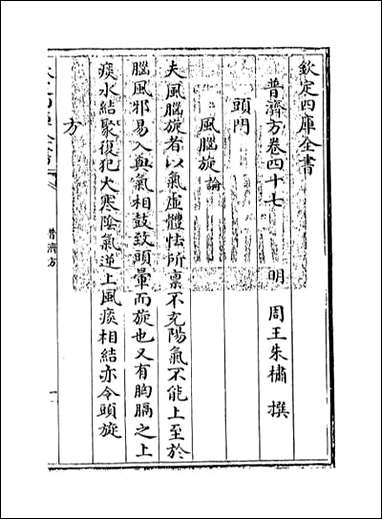 欽定四庫全書
普濟方卷四十七 明 周王朱橚 撰
頭門
風腦旋論
夫風腦旋者以氣虛體怯所禀不充陽氣不能上至於
腦風邪易入與氣相鼓致頭暈而旋也又有胸膈之上
痰水結聚復犯大寒陰氣逆上風痰相結亦令頭旋
方
普濟方